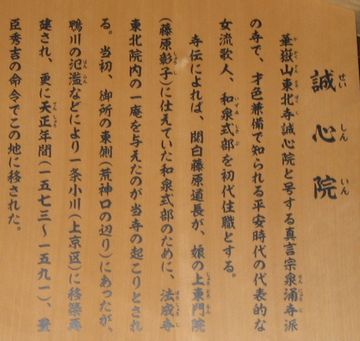 誠心院
せいしんいん
華嶽山東北寺誠心院と号する真言宗泉涌寺派
の寺で、才色兼備で知られる平安時代の代表的な
女流歌人、和泉式部を初代住職とする。
寺伝によれば、関白藤原道長が、娘の上東門院
(藤原彰子)に仕えていた和泉式部のために、法成寺
東北院内の一庵を与えたのが当寺の起こりとされ
る。当初、御所の東側(荒神口の辺り)にあったが、
鴨川の氾濫などにより一条小川(上京区)に移築再
建され、更に天正年間(一五七三〜一五九一)、豊
臣秀吉の命令でこの地に移された。